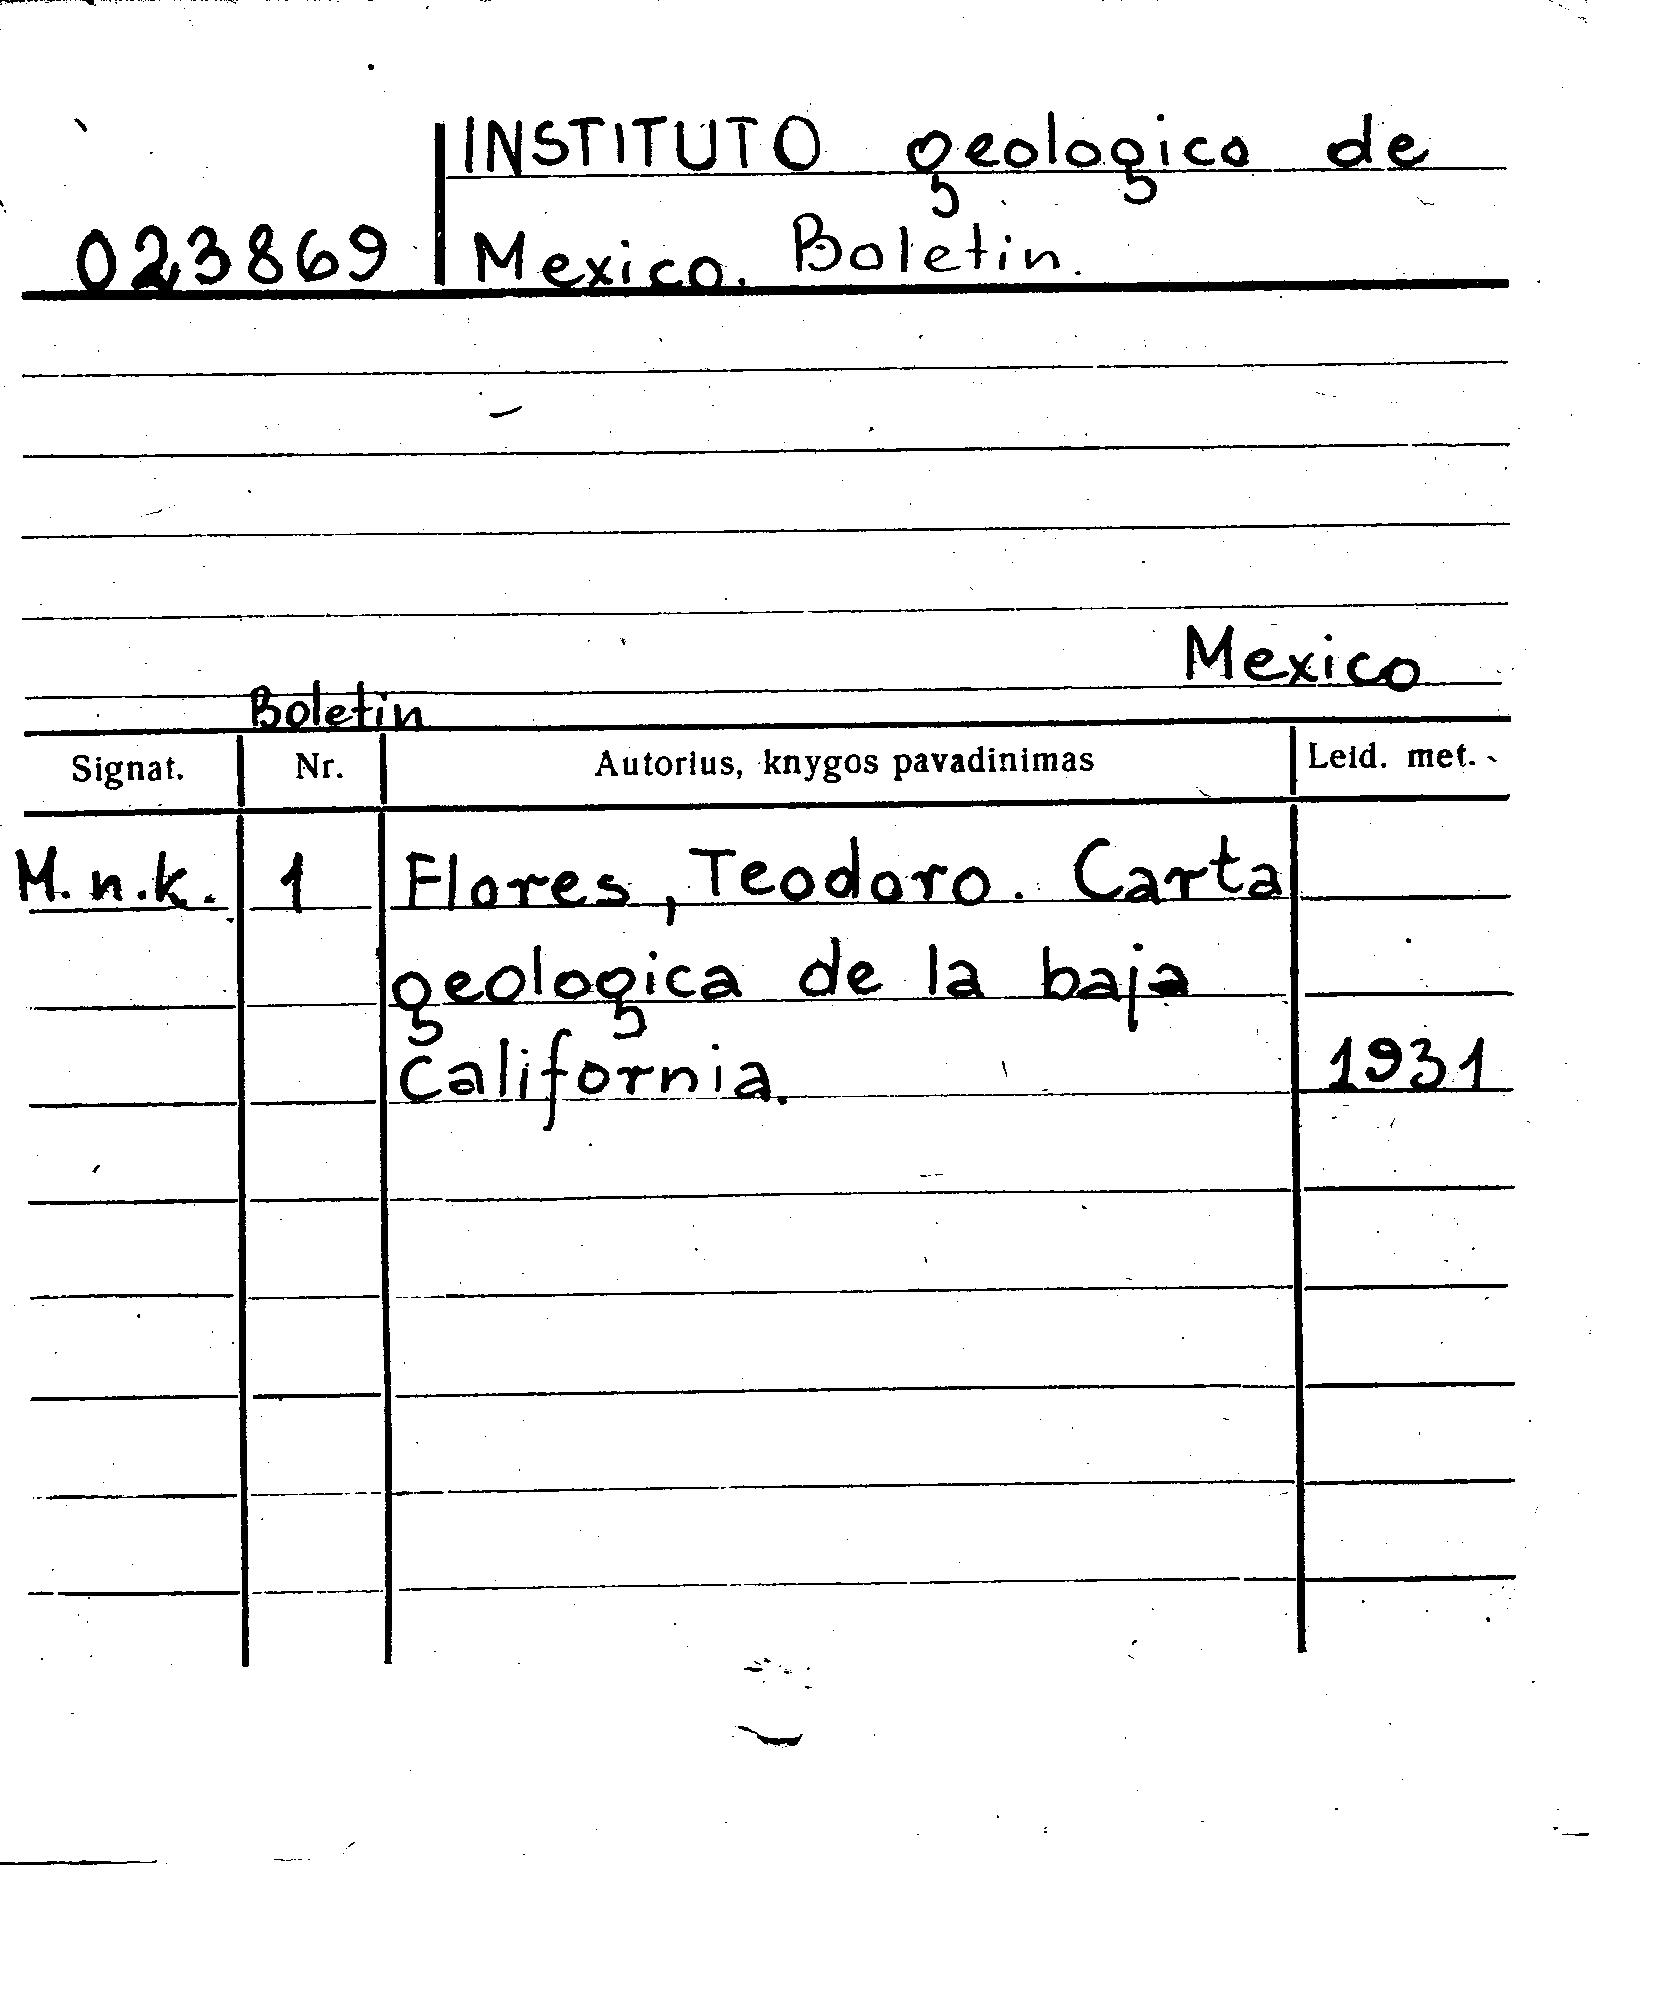 INSTITUTO geologico de
023869 Mexico. Boletin.
Mexico
Boletin
Signat. Nr. Autorius, knygos pavadinimas Leid. met.
M.n.k. 1 Flores, Teodoro. Carta
geologica de la baja
California. 1931